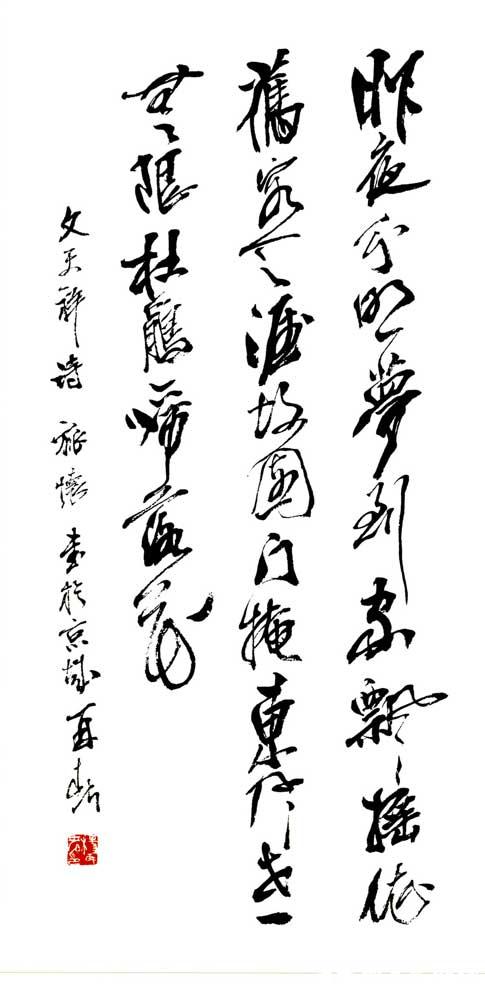 昨夜分明夢到家飄搖依
舊客天涯故園门掩東风老
無限杜鵑啼落花
文天祥诗 旅懷 書於京城